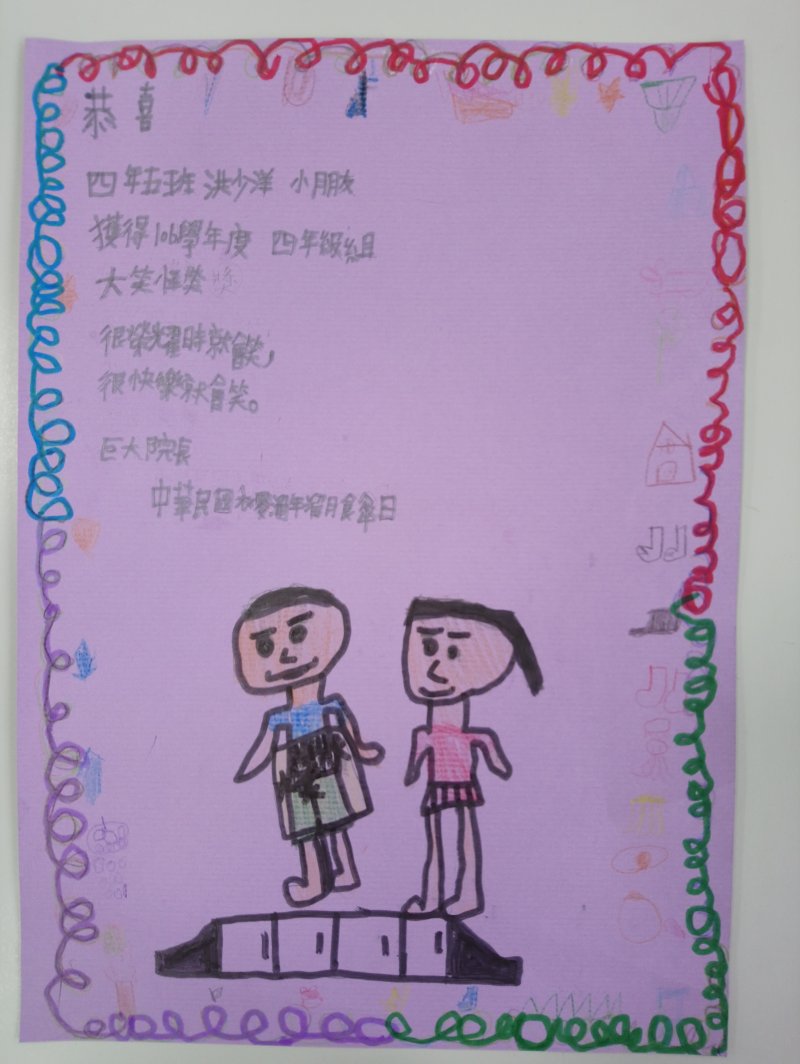 恭喜
四年五班 洪少洋 小朋友
獲得106學年度 四年級組
大笑怪獎
很榮耀時就會笑，
很快樂就會笑。
巨大院長
中華民國 年 月 日